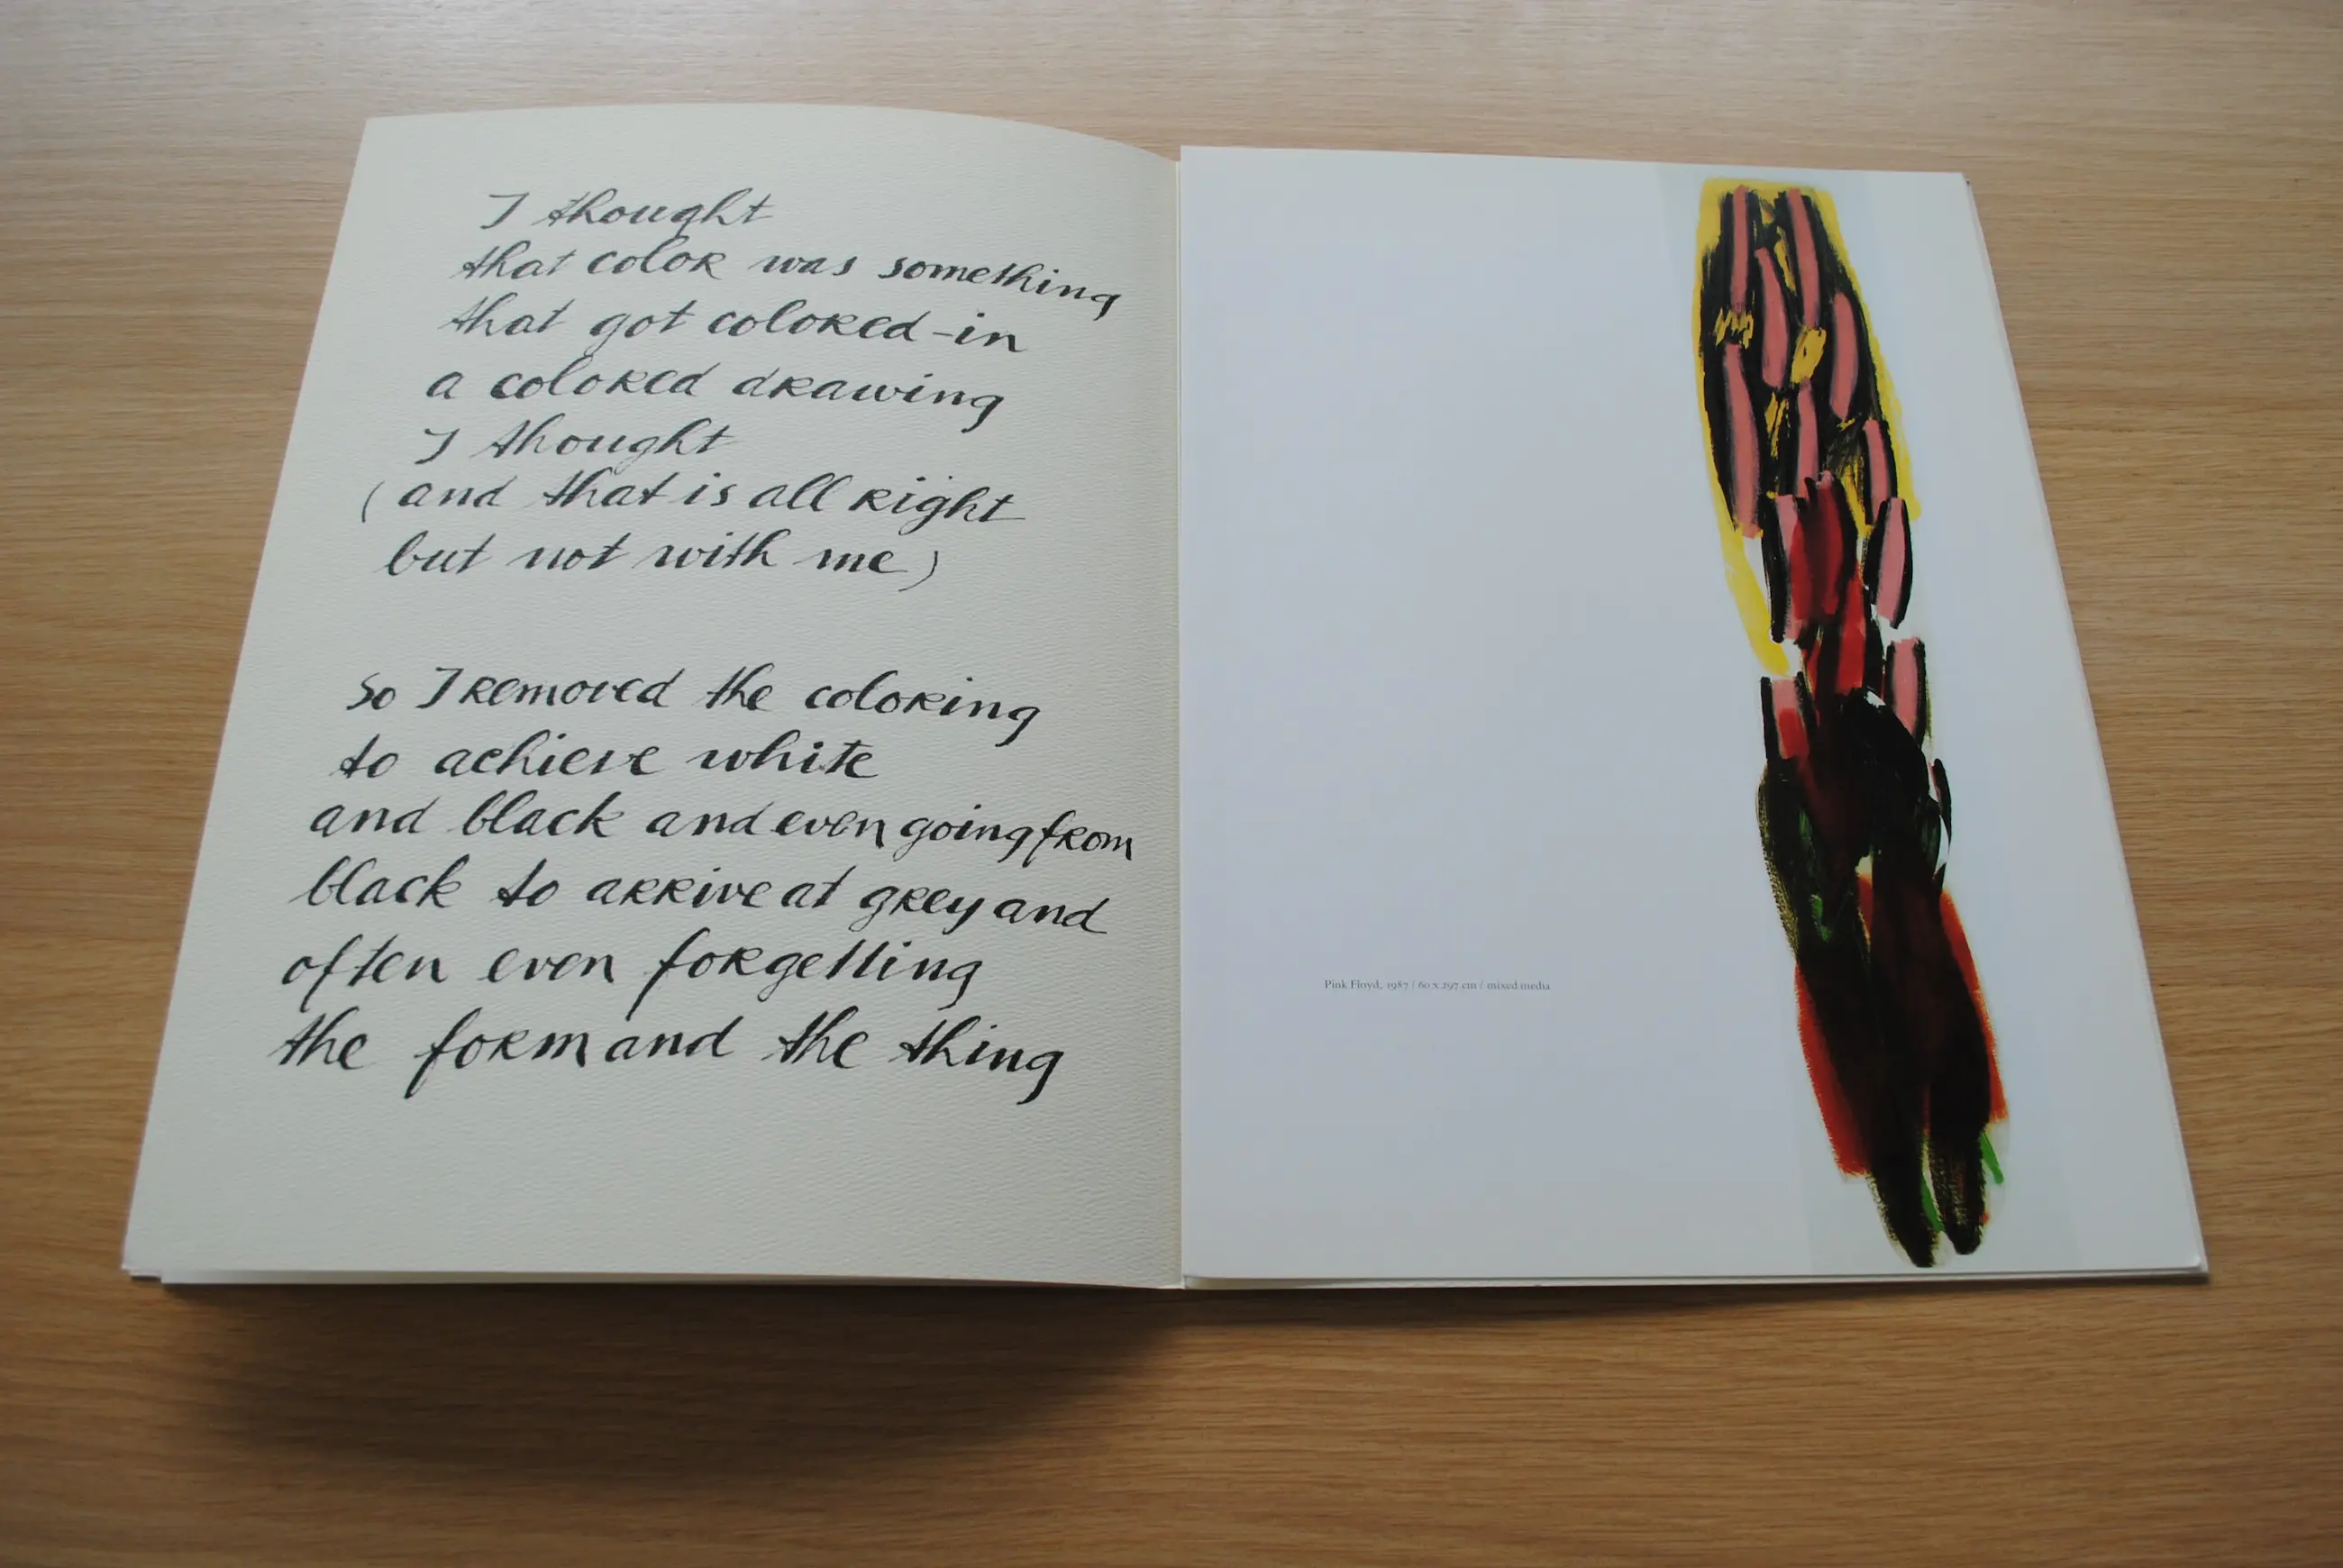 I thought
that color was something
that got colored-in
a colored drawing
I thought
(and that is all right
but not with me)
so I removed the coloring
to achieve white
and black and even going from
black to arrive at grey and
often even forgetting
the form and the thing
Pink Floyd, 1987 / 60 x 297 cm / mixed media